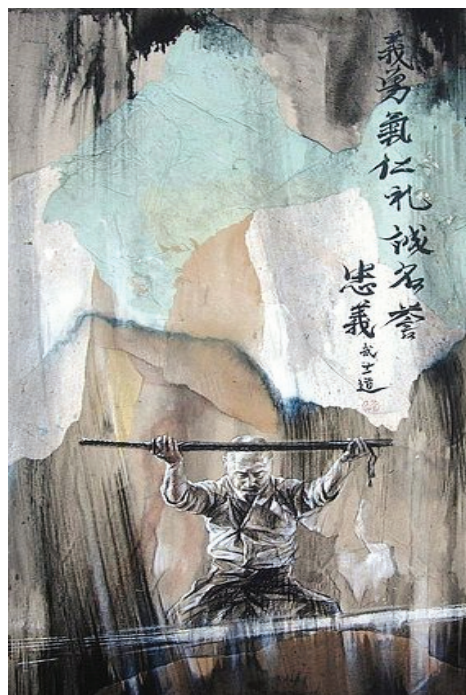 義勇氣仁礼誠名誉
忠義
武士道